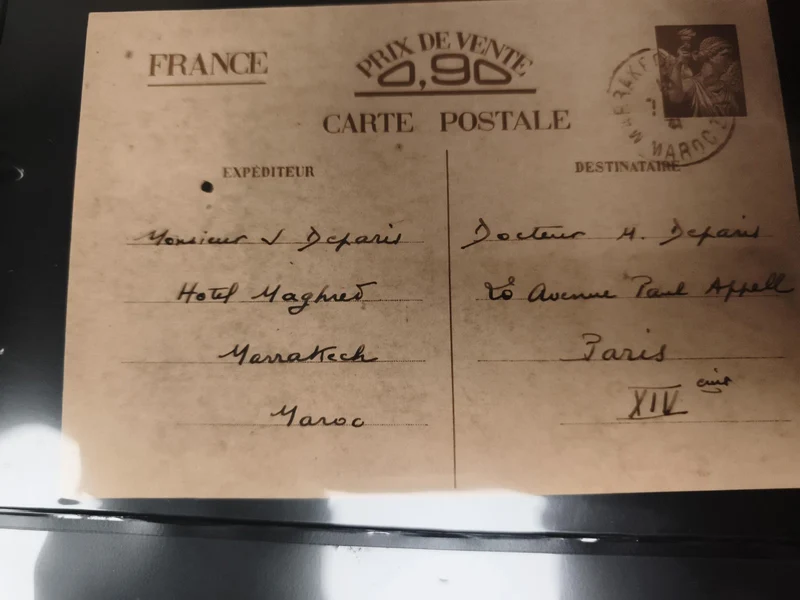 FRANCE
PRIX DE VENTE
0,90
CARTE POSTALE
EXPÉDITEUR
Monsieur J Deparis
Hotel Maghreb
Marrakech
Maroc
DESTINATAIRE
Docteur H. Deparis
Avenue Paul Appell
Paris
XIV
MAROC